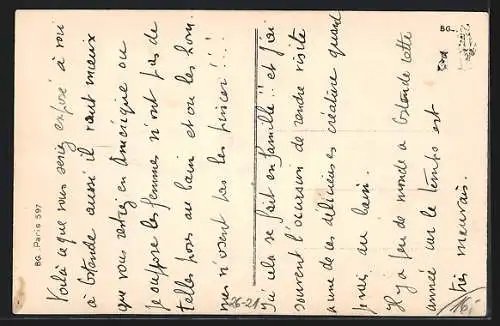 Voilà ce que vous seriez exposé à voir
à Ostende aussi il vaut mieux
que vous restiez en Amérique où
je suppose les femmes n'ont pas de
telles poses au bain et où les hom.
mes n'osent pas les pincer!!!
Ici cela se fait en famille!! et j'ai
souvent l'occasion de rendre visite
a une de ces délicieuses créature quand
j'vais au bain.
Il y a peu de monde a Ostende cette
année car le temps est
très mauvais.
BG. Paris 597
BG
26-21